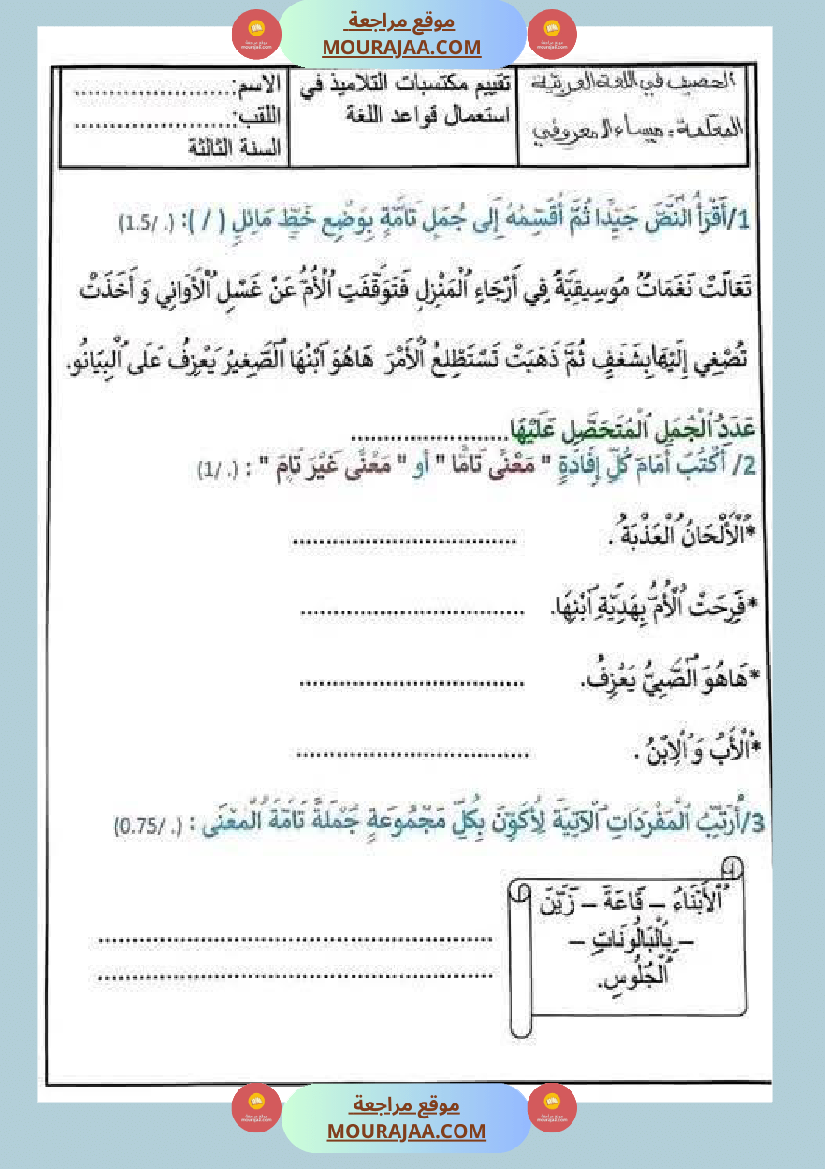 موقع مراجعة
MOURAJAA.COM
المعلمة : ميساء المعروفي
تقييم مكتسبات التلاميذ في
استعمال قواعد اللغة
الاسم:........................
اللقب:........................
السنة الثالثة
1/أَقْرَأُ ٱلنَّصَّ جَيِّدًا ثُمَّ أُقَسِّمُهُ إِلى جُمَلٍ تَامَّةٍ بِوَضْعِ خَطٍّ مَائِلٍ ( / ): (. /1.5)
تَعَالَتْ نَغَمَاتٌ مُوسِيقِيَّةٌ فِي أَرْجَاءِ ٱلْمَنْزِلِ فَتَوَقَّفَتِ ٱلْأُمُّ عَنْ غَسْلِ ٱلْأَوَانِي وَ أَخَذَتْ
تُصْغِي إِلَيْهَا بِشَغَفٍ ثُمَّ ذَهَبَتْ تَسْتَطْلِعُ ٱلْأَمْرَ هَاهُوَ ٱبْنُهَا ٱلصَّغِيرُ يَعْزِفُ عَلَى ٱلْبِيَانُو.
عَدَدُ ٱلْجُمَلِ ٱلْمُتَحَصَّلِ عَلَيْهَا........................
2/ أَكْتُبُ أَمَامَ كُلِّ إِفَادَةٍ " مَعْنًى تَامًّا " أو " مَعْنًى غَيْرَ تَامٍّ " : (. /1)
*ٱلْأَلْحَانُ ٱلْعَذْبَةُ . ..................................
*فَرِحَتْ ٱلْأُمُّ بِهَدِيَّةِ ٱبْنِهَا. ..................................
*هَاهُوَ ٱلصَّبِيُّ يَعْزِفُ. ..................................
*ٱلْأَبُ وَ ٱلِابْنُ . ..................................
3/أُرَتِّبُ ٱلْمُفْرَدَاتِ ٱلْآتِيَةَ لِأُكَوِّنَ بِكُلِّ مَجْمُوعَةٍ جُمْلَةً تَامَّةَ ٱلْمَعْنَى : (. /0.75)
ٱلْأَبْنَاءُ – قَاعَةَ – زَيَّنَ
– بِٱلْبَالُونَاتِ –
ٱلْجُلُوسِ.
............................................................
............................................................
موقع مراجعة
MOURAJAA.COM